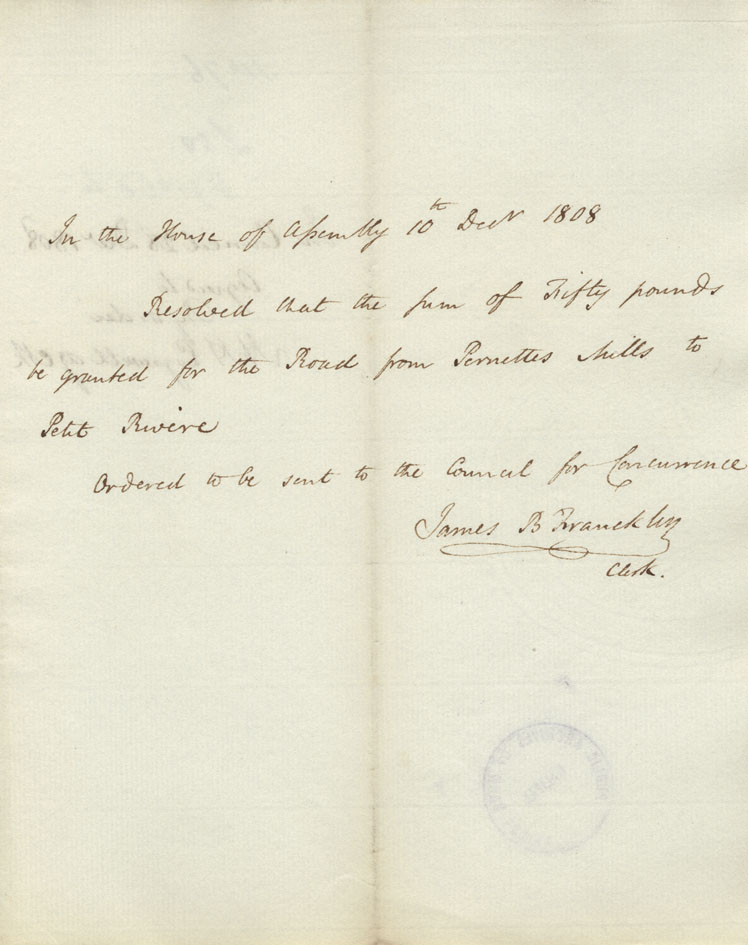 In the House of Assembly 10th Decr 1808
Resolved that the sum of Fifty pounds
be granted for the Road from Pernettes Mills to
Petit Riviere
Ordered to be sent to the Council for Concurrence
James B Francklin
Clerk.